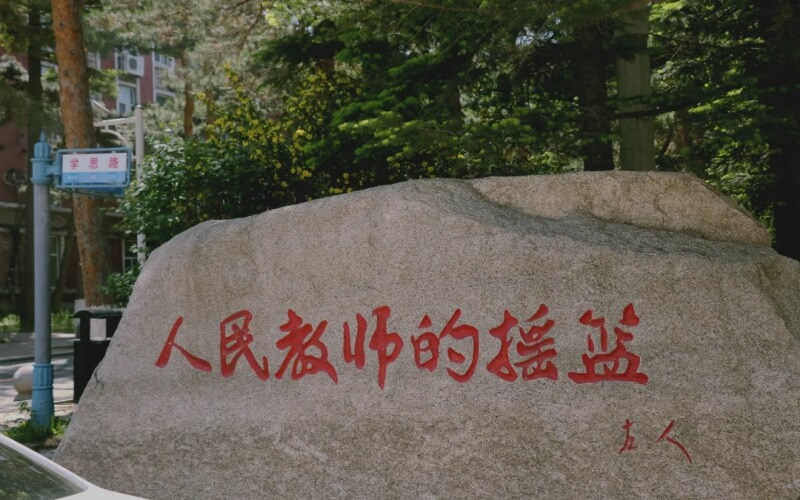 学思路
人民教师的摇篮